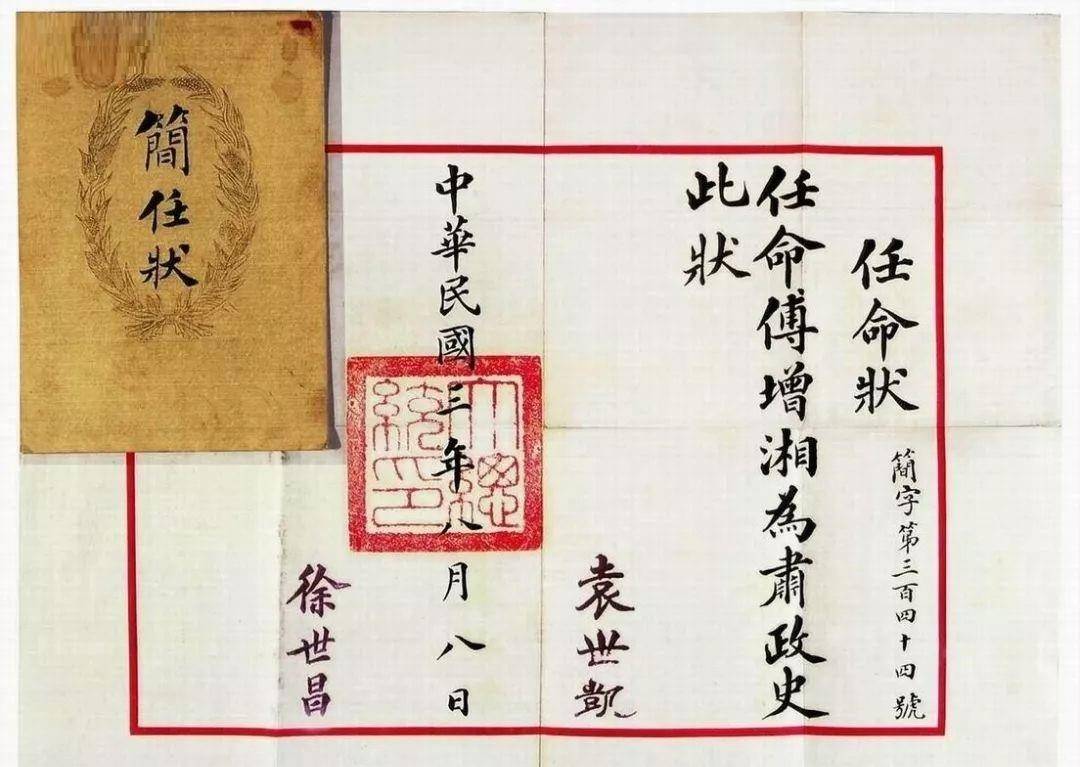 簡任狀
任命狀
簡字第三百四十四號
任命傅增湘為肅政史
此狀
袁世凱
中華民國三年八月八日
大總統印
徐世昌